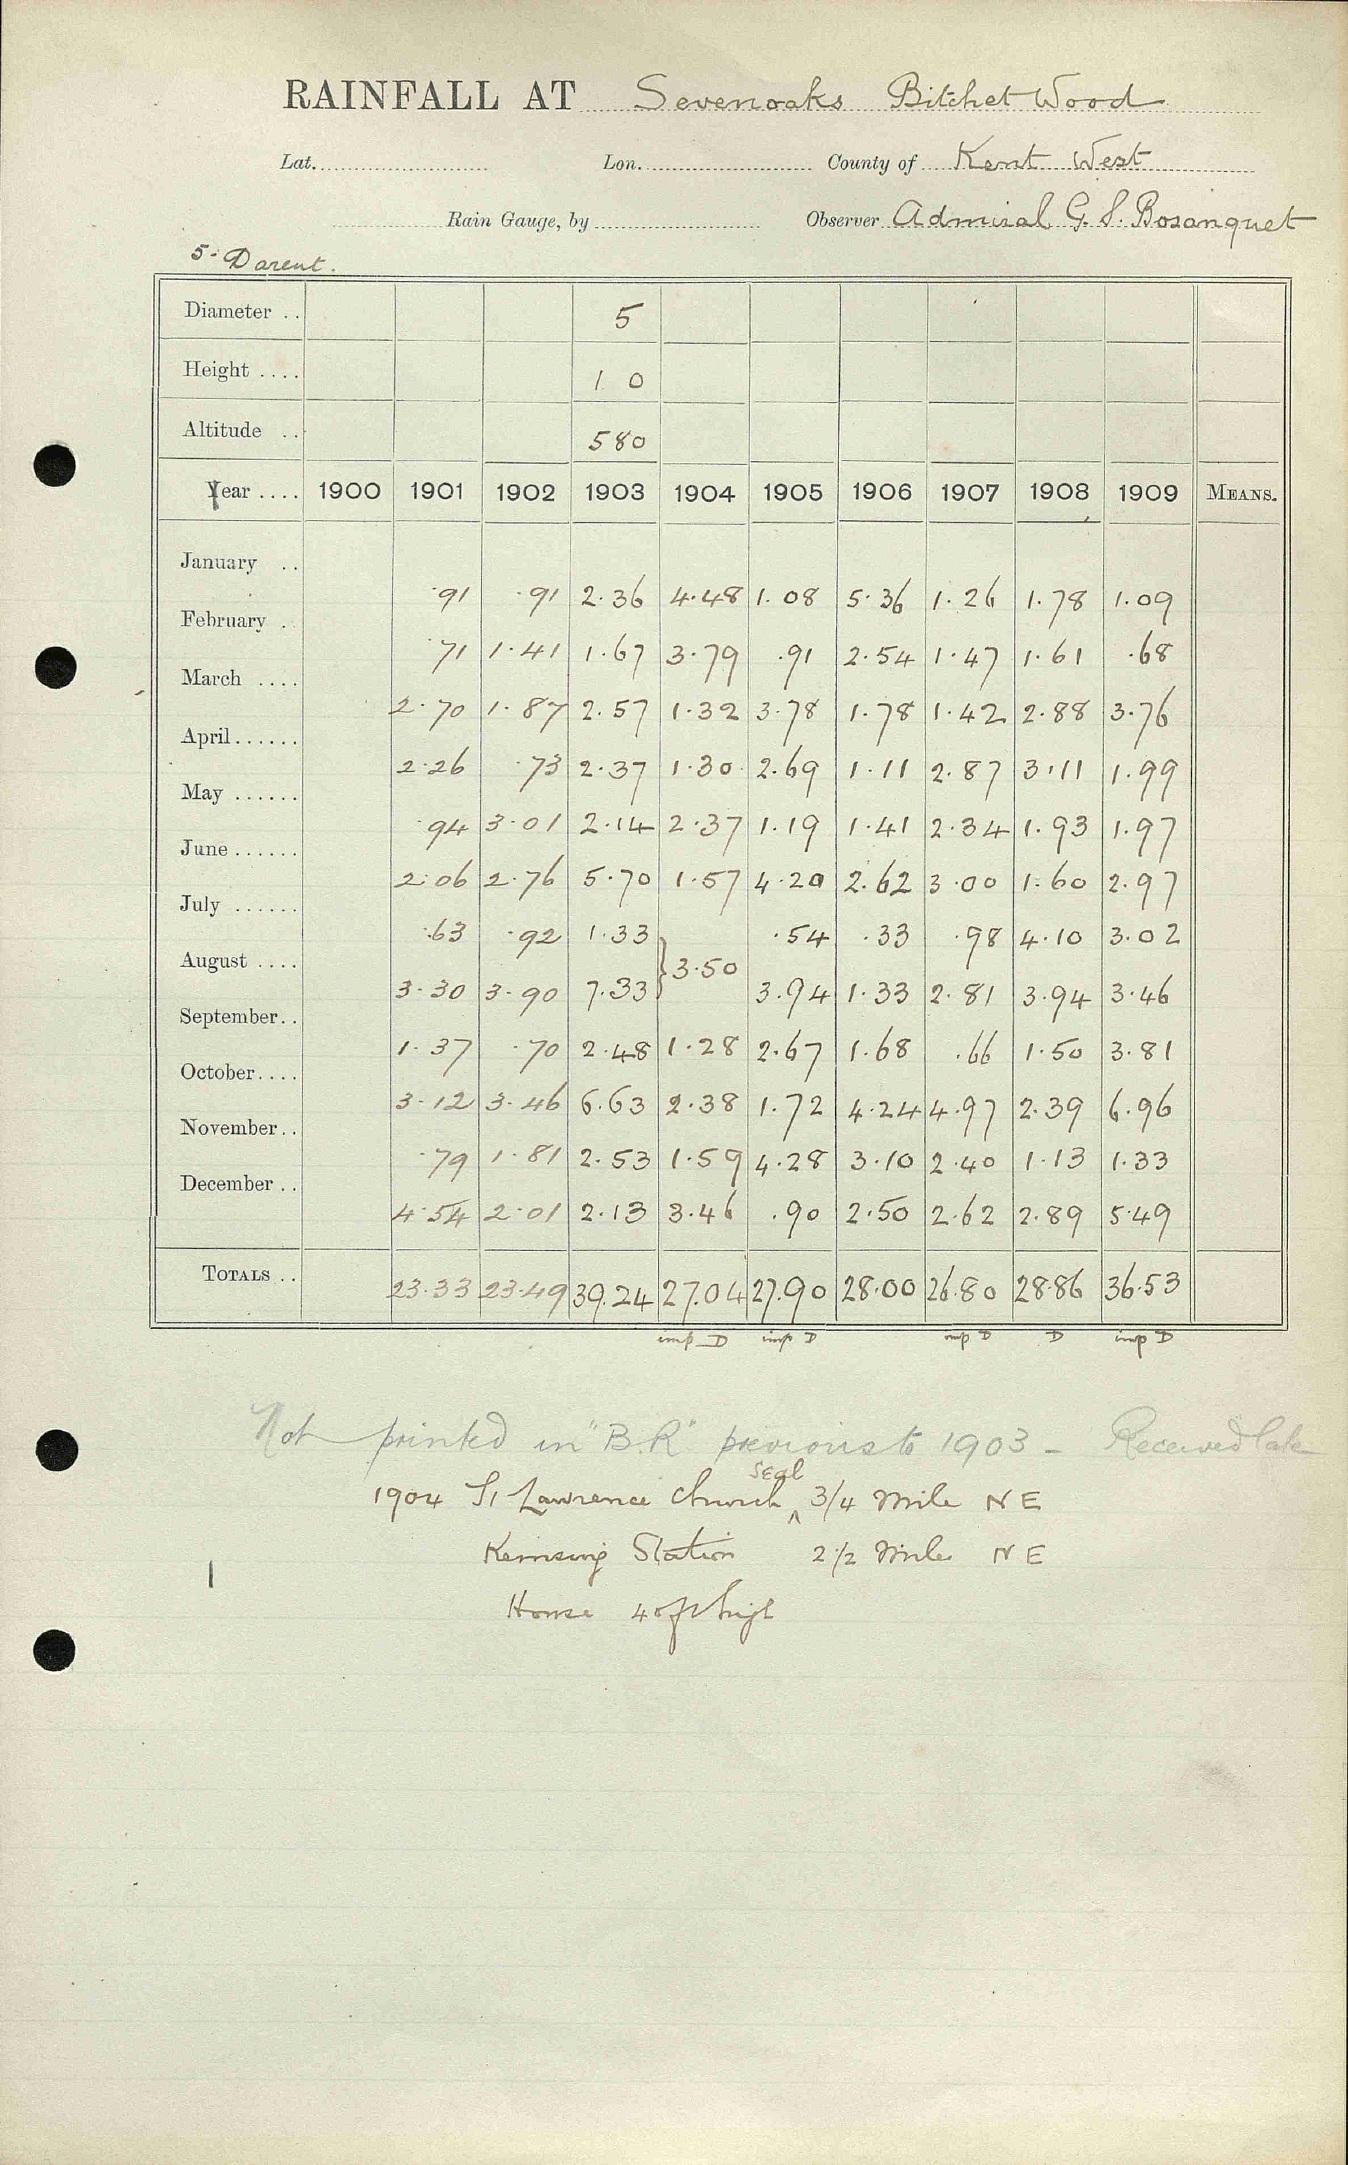 RAINFALL AT Sevenoaks Bitchet Wood
Lat. Lon. County of Kent West
Rain Gauge, by Observer Admiral G. S. Bosanquet
5- Darent.
Diameter .. 5
Height .... 1 0
Altitude .. 580
Year .... 1900 1901 1902 1903 1904 1905 1906 1907 1908 1909 MEANS.
January .. .91 .91 2.36 4.48 1.08 5.36 1.26 1.78 1.09
February . .71 1.41 1.67 3.79 .91 2.54 1.47 1.61 .68
March .... 2.70 1.87 2.57 1.32 3.78 1.78 1.42 2.88 3.76
April...... 2.26 .73 2.37 1.30 2.69 1.11 2.87 3.11 1.99
May ...... .94 3.01 2.14 2.37 1.19 1.41 2.34 1.93 1.97
June ...... 2.06 2.76 5.70 1.57 4.20 2.62 3.00 1.60 2.97
July ...... .63 .92 1.33 .54 .33 .98 4.10 3.02
} 3.50
August .... 3.30 3.90 7.33 3.94 1.33 2.81 3.94 3.46
September.. 1.37 .70 2.48 1.28 2.67 1.68 .66 1.50 3.81
October.... 3.12 3.46 6.63 2.38 1.72 4.24 4.97 2.39 6.96
November.. .79 1.81 2.53 1.59 4.28 3.10 2.40 1.13 1.33
December .. 4.54 2.01 2.13 3.46 .90 2.50 2.62 2.89 5.49
TOTALS .. 23.33 23.49 39.24 27.04 27.90 28.00 26.80 28.86 36.53
imp D imp D imp D D imp D
Not printed in "B.R" previous to 1903 - Received late
Seal
1904 St Lawrence Church ^ 3/4 Mile NE
Kemsing Station 2 1/2 Miles NE
House 40 ft high